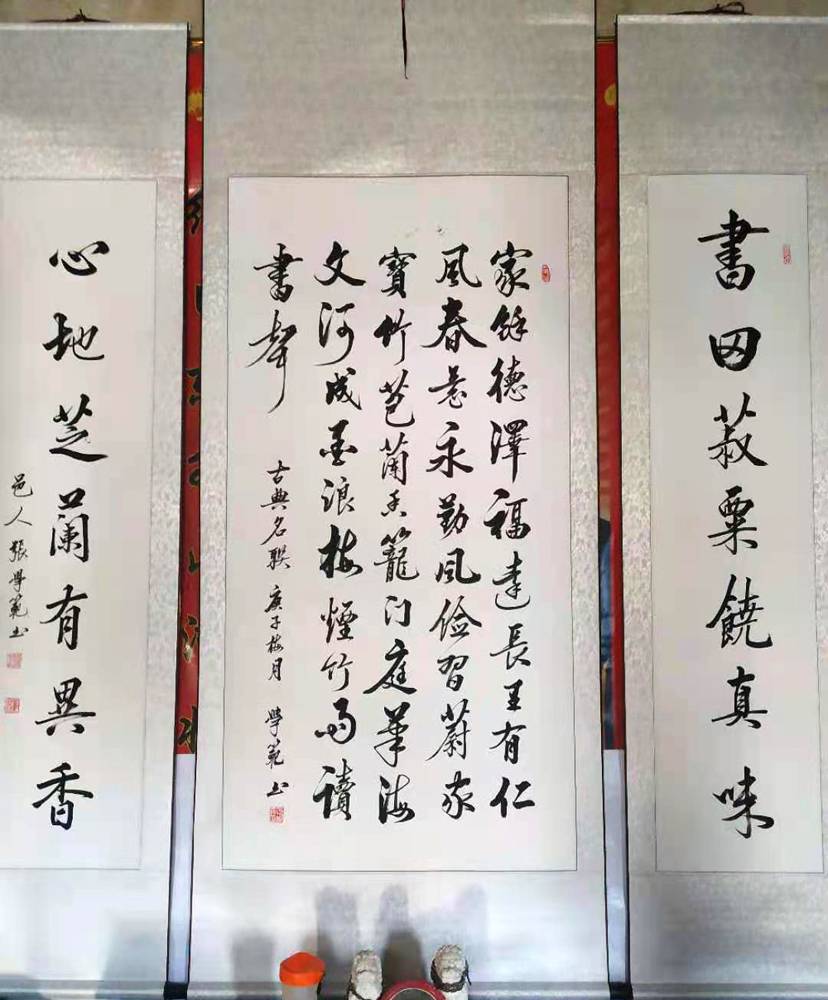 書田菽粟饒真味
家餘德澤福達長里有仁
風春意永勤風儉習蔚家
寶竹苞蘭香籠門庭華海
文河成墨浪梅煙竹雨讀
書聲
古典名聯 庚子梅月 學範书
心地芝蘭有異香
邑人張學範书